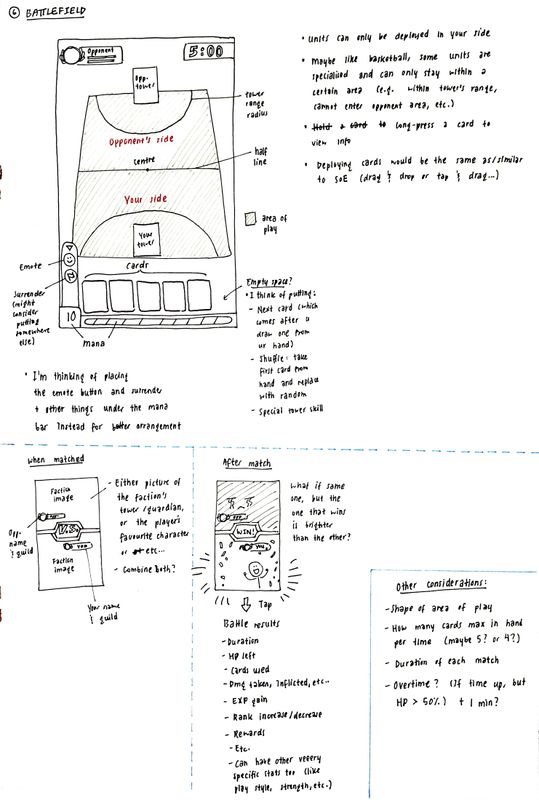 6 BATTLEFIELD
Opponent
5:00
Opp.
tower
tower
range
radius
Opponent's side
centre
half
line
Your side
Your
tower
area of
play
Emote
cards
Surrender
(might
consider
putting
somewhere
else)
10
mana
Empty space?
• I think of putting:
- Next card (which
comes after u
draw one from
ur hand)
- Shuffle: take
first card from
hand and replace
with random
- Special tower skill
• I'm thinking of placing
the emote button and surrender
+ other things under the mana
bar instead for better arrangement
• Units can only be deployed in your side
• Maybe like basketball, some units are
specialised and can only stay within a
certain area (e.g. within tower's range,
cannot enter opponent area, etc.)
• Hold a card to long-press a card to
view info
• Deploying cards would be the same as/similar
to SoE (drag & drop or tap & drag...)
When matched
Faction
image
Opp.
name
& guild
V.S.
Faction
image
Your name
& guild
- Either picture of
the faction's
tower/guardian,
or the player's
favourite character
or etc...
- Combine both?
After match
WIN!
YOU
What if same
one, but the
one that wins
is brighter
than the other?
Tap
Battle results
- Duration
- HP left
- Cards used
- Dmg taken, inflicted, etc..
- EXP gain
- Rank increase/decrease
- Rewards
- Etc.
- Can have other veeery
specific stats too (like
play style, strength, etc.)
Other considerations:
- Shape of area of play
- How many cards max in hand
per time (maybe 5? or 4?)
- Duration of each match
- Overtime? (If time up, but
HP > 50%) + 1 min?